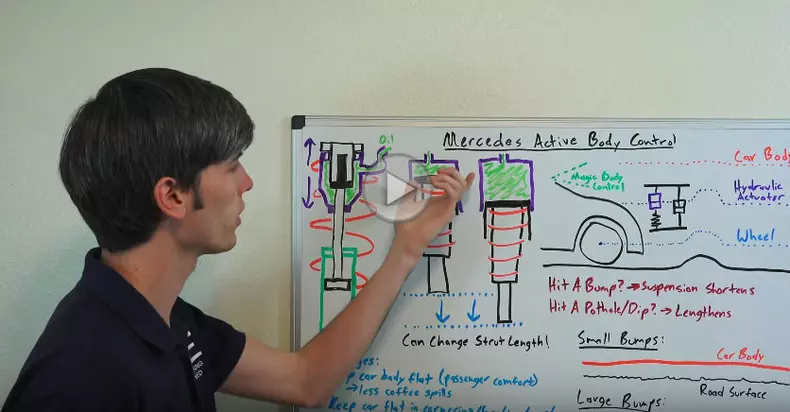 Mercedes Active Body Control
Oil
Magic Body
Control
Car Body
Hydraulic
Actuator
Wheel
Hit A Bump? → Suspension Shortens
Hit A Pothole/Dip? → Lengthens
Can Change Strut Length!
car body flat (passenger comfort)
→ less coffee spills
Keep car flat in cornering
Small Bumps:
Car Body
Road Surface
Large Bumps: